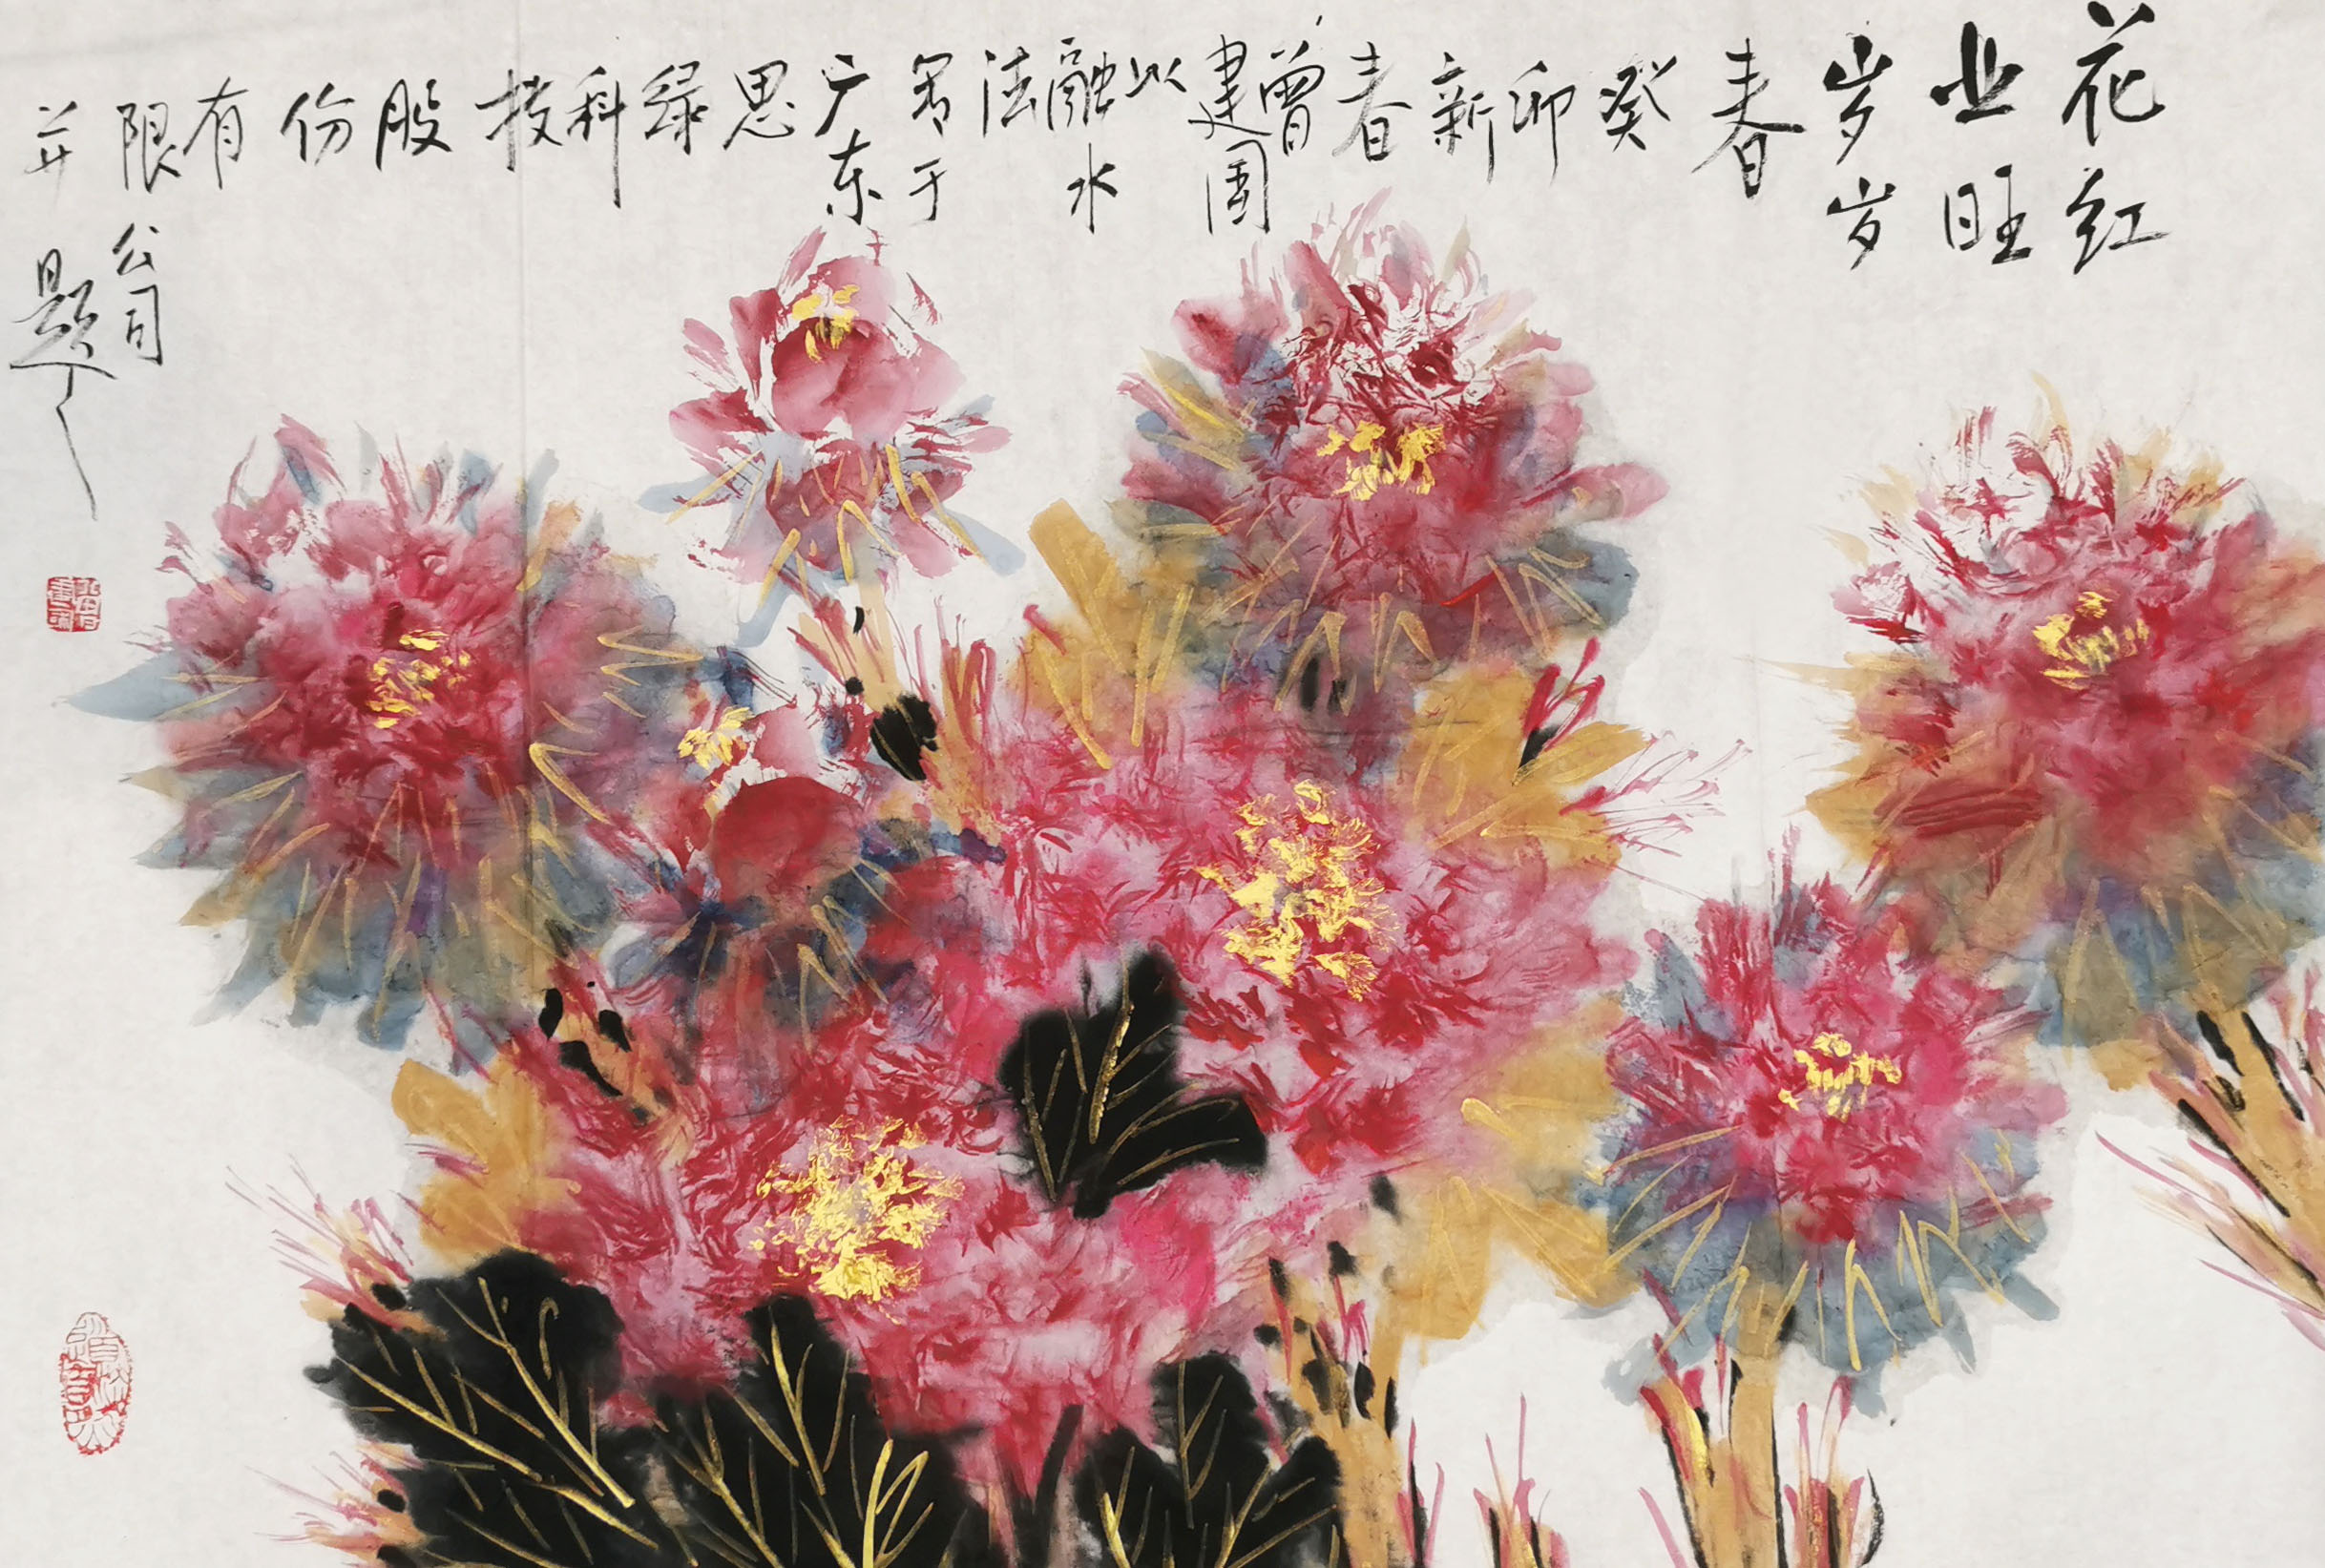 花红
业旺
岁岁
春
癸
卯
新
春
曾
建国
以
融水
法
写于
广东
思
绿
科
技
股
份
有
限公司
并题